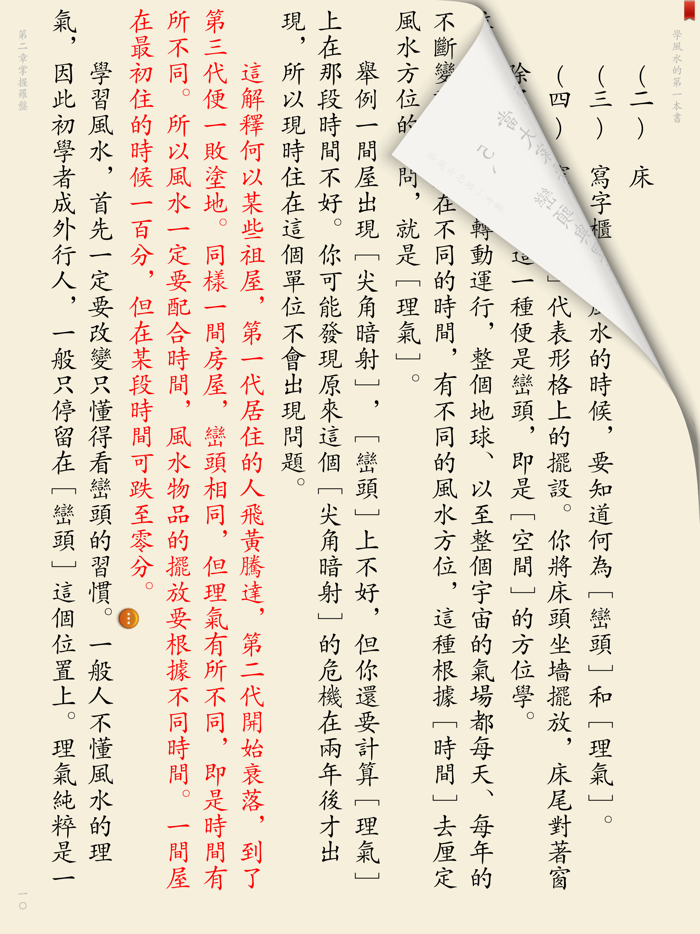 學風水的第一本書
（二） 床
（三） 寫字櫃
風水的時候，要知道何為［巒頭］和［理氣］。
（四）
］代表形格上的擺設。你將床頭坐墻擺放，床尾對著窗
除
這一種便是巒頭，即是［空間］的方位學。
轉動運行，整個地球、以至整個宇宙的氣場都每天、每年的
不斷變 在不同的時間，有不同的風水方位，這種根據［時間］去厘定
風水方位的 問，就是［理氣］。
舉例一間屋出現［尖角暗射］，［巒頭］上不好，但你還要計算［理氣］
上在那段時間不好。你可能發現原來這個［尖角暗射］的危機在兩年後才出
現，所以現時住在這個單位不會出現問題。
這解釋何以某些祖屋，第一代居住的人飛黃騰達，第二代開始衰落，到了
第三代便一敗塗地。同樣一間房屋，巒頭相同，但理氣有所不同，即是時間有
所不同。所以風水一定要配合時間，風水物品的擺放要根據不同時間。一間屋
在最初住的時候一百分，但在某段時間可跌至零分。
學習風水，首先一定要改變只懂得看巒頭的習慣。一般人不懂風水的理
氣，因此初學者成外行人，一般只停留在［巒頭］這個位置上。理氣純粹是一
第二章掌握羅盤
一〇